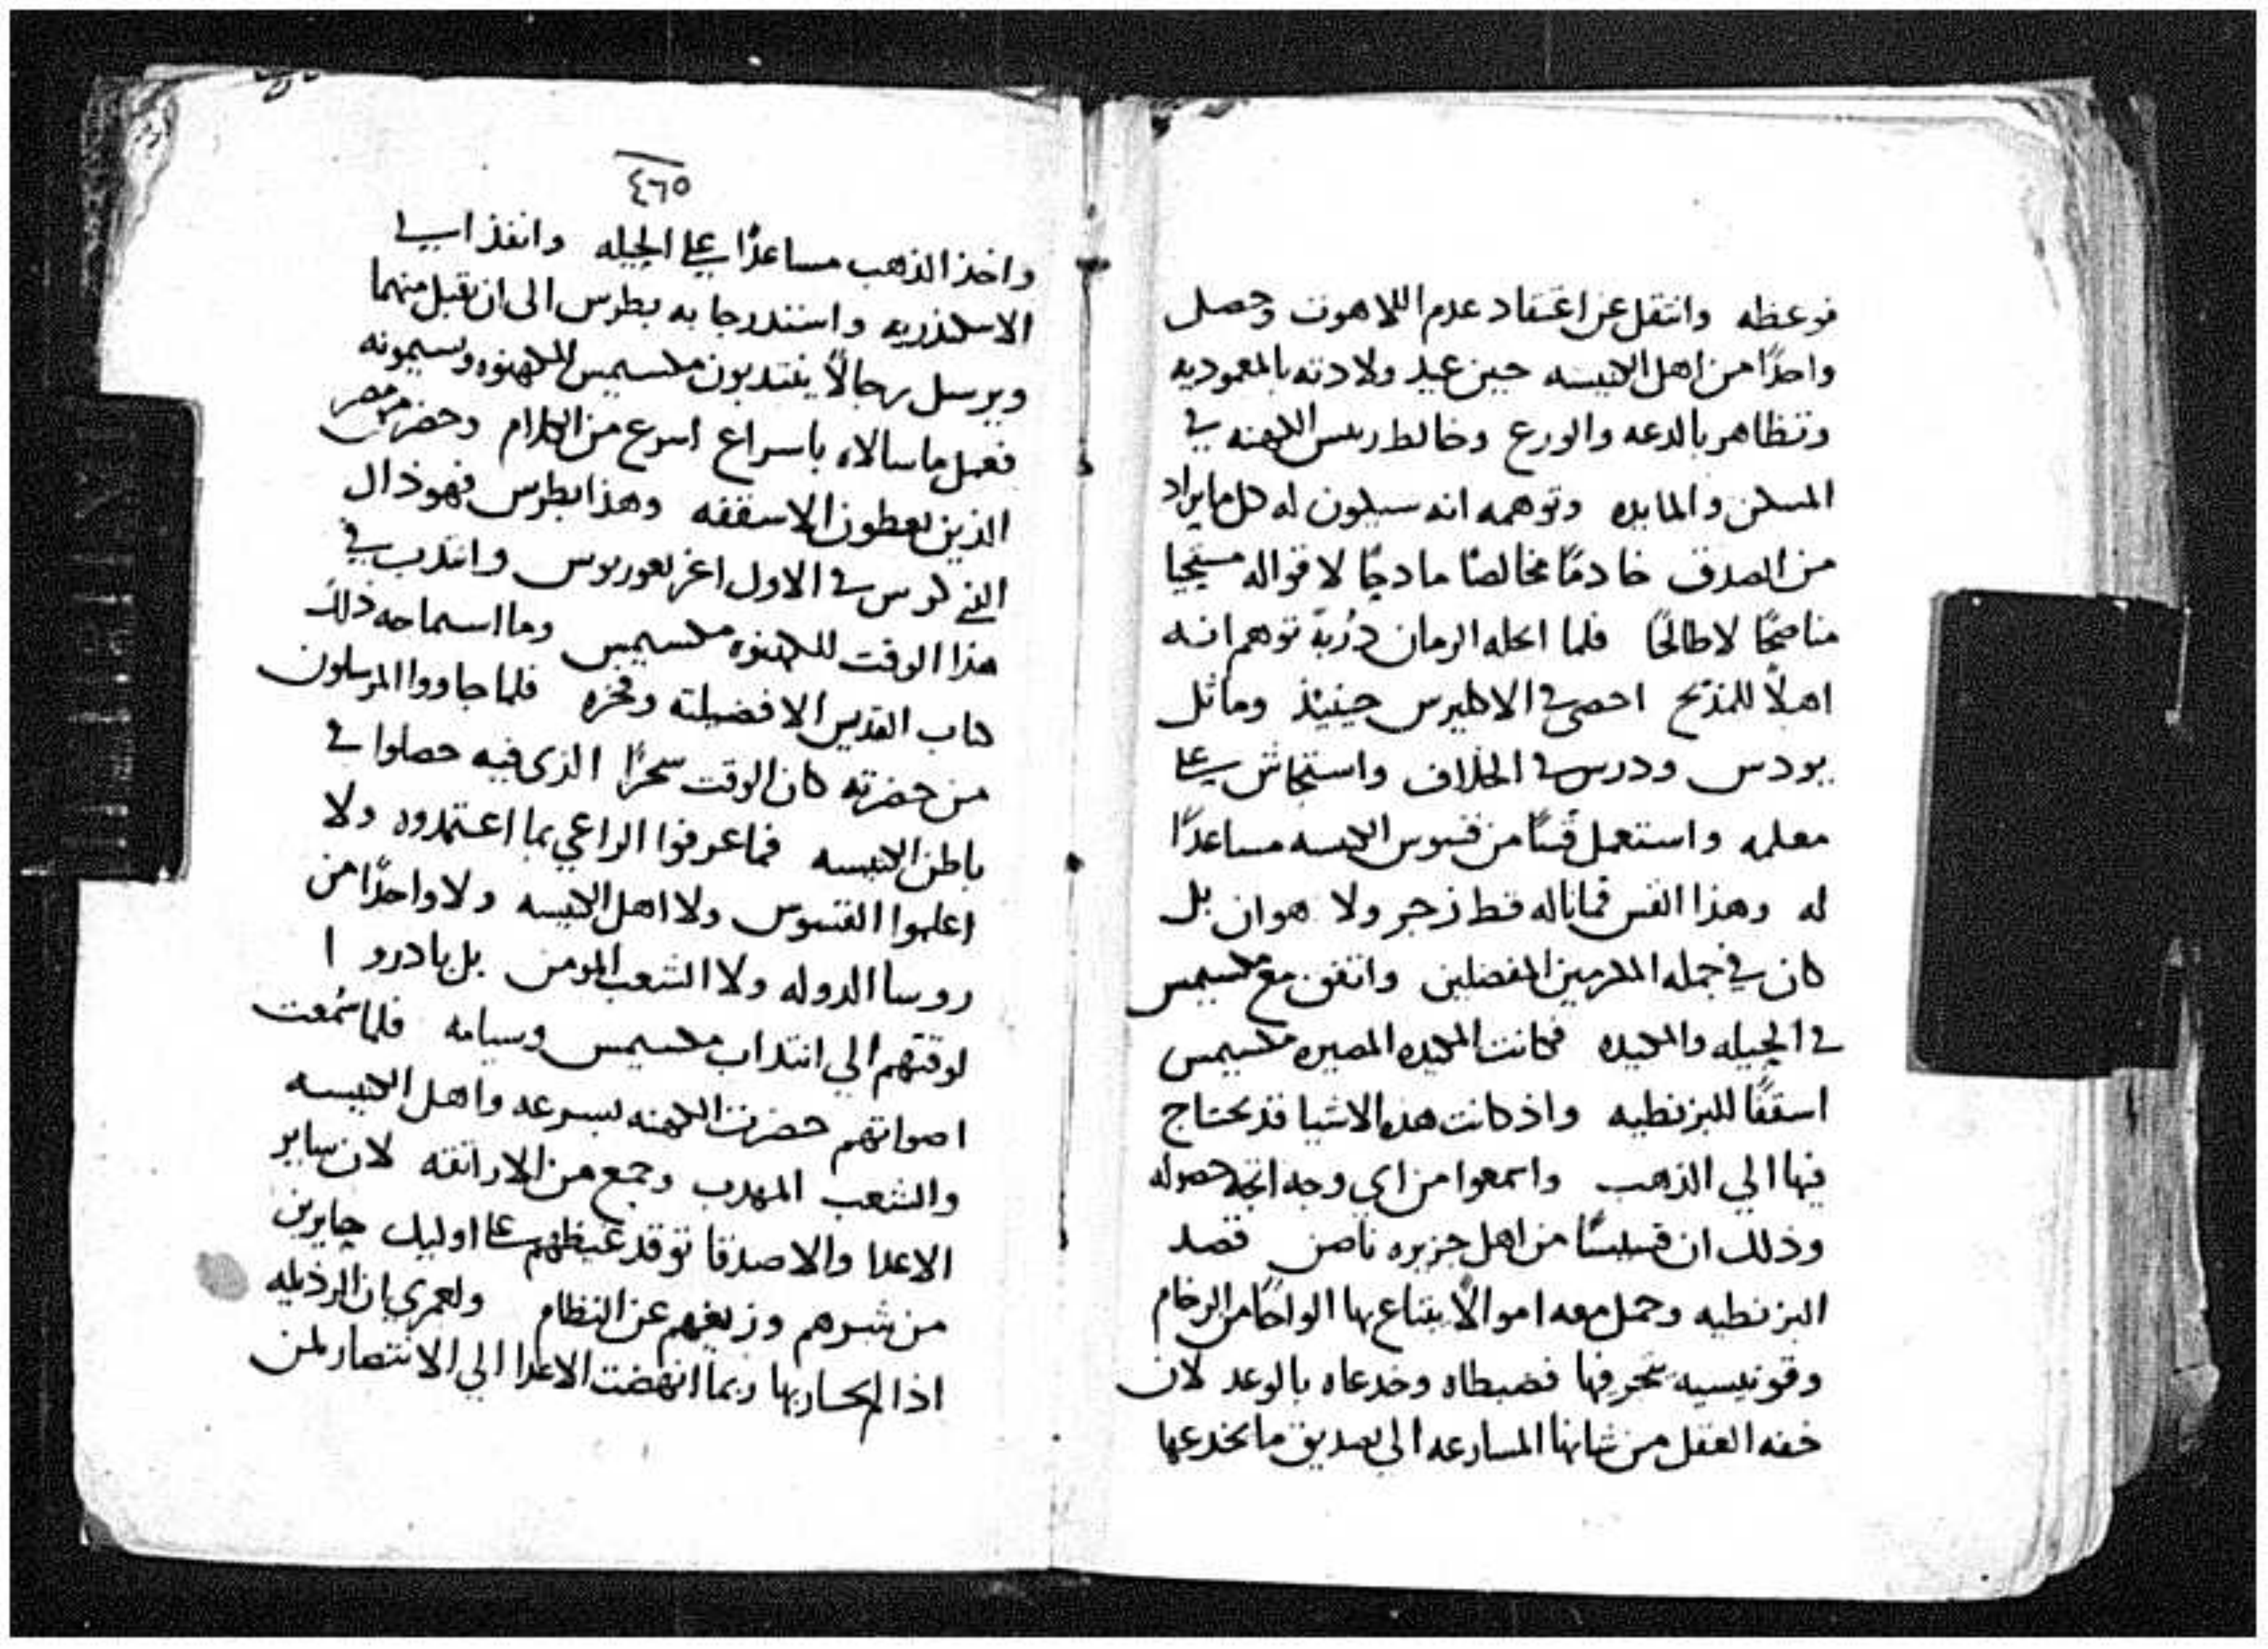 فوعظه وانتقل عن اعتقاد عدم اللاهوت وحصل
واحدًا من اهل الكنيسه حين عيد ولادته بالمعموديه
وتظاهر بالدعه والورع وخالط رييس الكهنه في
المسكن والمايده وتوهمه انه سيكون له كل ما يراد
من الصدق خادمًا مخالصًا مادحًا لاقواله مسيحيا
مناصحًا لا طالحًا فلما احله الزمان دُربةً توهم انه
اهلًا للمذبح احصي في الاكليرس حينيذ وماثل
يودس ودرس في الخلاف واستجاش علي
معلمه واستعمل قسًا من قسوس الكنيسه مساعدًا
له وهذا القس فما ناله قط زجر ولا هوان بل
كان في جمله المكرمين المفضلين واتفق مع مكسيمس
في الحيله والمكيده فكانت المكيده المصيره مكسيمس
اسقفًا للبزنطيه واذ كانت هذه الاشيا قد يحتاج
فيها الي الذهب واسمعوا من اي وجه اتجه حصوله
وذلك ان قسيسًا من اهل جزيره ثاصن قصد
البزنطيه وحمل معه اموالًا يبتاع بها الواحًا من الرخام
وقونيسيه فضبطاه وخدعاه بالوعد لان
خفه العقل من شانها المسارعه الي تصديق ما يخدعها
٤٦٥
واخذ الذهب مساعدًا علي الحيله وانفذا الي
الاسكندريه واستدرجا به بطرس الي ان تقبل منهما
ويرسل رجالًا ينتدبون مكسيمس للكهنوه ويسيمونه
ففعل ما سالاه باسراع اسرع من الكلام وحضر من مصر
الذين يعطون الاسقفه وهذا بطرس فهو ذاك
الذي كرس في الاول اغريغوريوس وانتدب في
هذا الوقت للكهنوه مكسيمس وما استماحه ذلك
كتاب القديس الا فضيلته وفخره فلما جاووا المرسلون
من حضرته كان الوقت سحرًا الذي فيه حصلوا في
باطن الكنيسه فما عرفوا الراعي بما اعتمدوه ولا
اعلموا القسوس ولا اهل الكنيسه ولا واحدًا من
روسا الدوله ولا الشعب المومن بل بادروا
لوقتهم الي انتداب مكسيمس وسيامه فلما سُمعت
اصواتهم حضرت الكهنه بسرعه واهل الكنيسه
والشعب المهدب وجمع من الاراتقه لان ساير
الاعدا والاصدقا توقد غيظهم علي اوليك جايرين
من شرهم وزيغهم عن النظام ولعمري بان الرذيله
اذا لم يحاربها ربما انهضت الاعدا الي الانتصار لمن